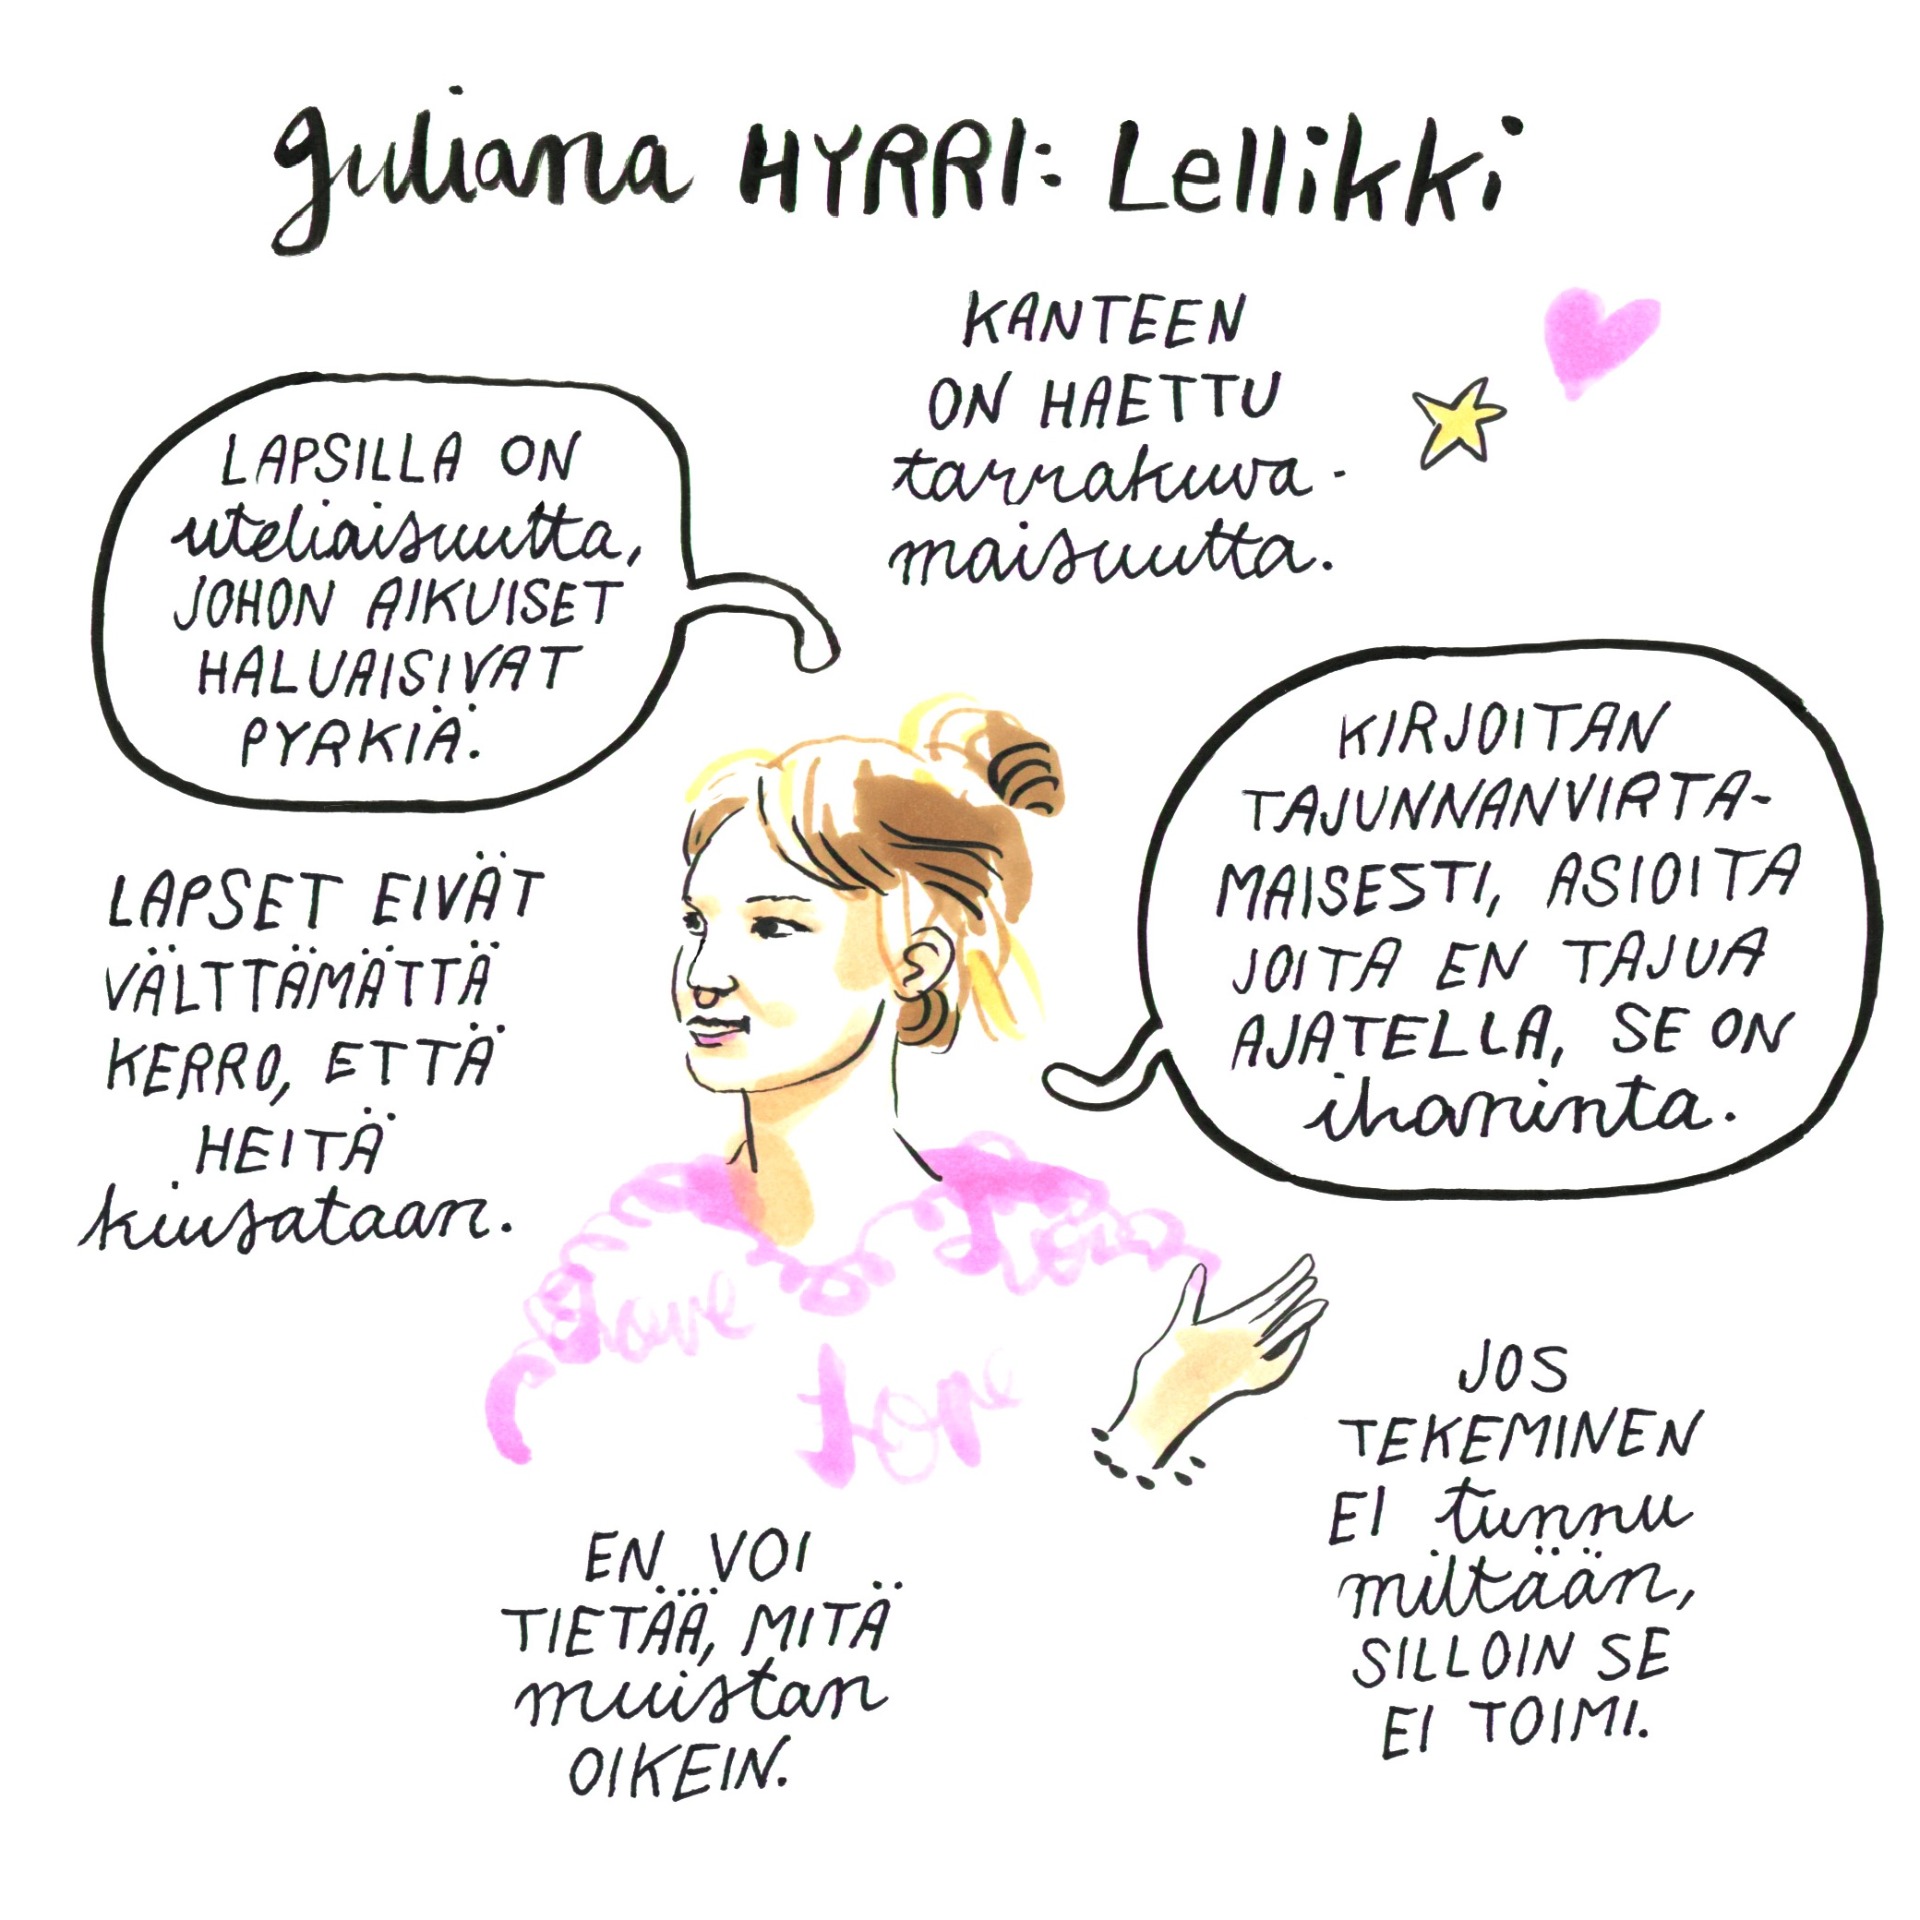 Juliana HYRRI: Lellikki
KANTEEN
ON HAETTU
tarrakuva-
maisuutta.
LAPSILLA ON
uteliaisuutta,
JOHON AIKUISET
HALUAISIVAT
PYRKIÄ.
KIRJOITAN
TAJUNNANVIRTA-
MAISESTI, ASIOITA
JOITA EN TAJUA
AJATELLA, SE ON
ihaninta.
LAPSET EIVÄT
VÄLTTÄMÄTTÄ
KERRO, ETTÄ
HEITÄ
kiusataan.
Love
Love
Love
JOS
TEKEMINEN
EI tunnu
miltään,
SILLOIN SE
EI TOIMI.
EN VOI
TIETÄÄ, MITÄ
muistan
OIKEIN.